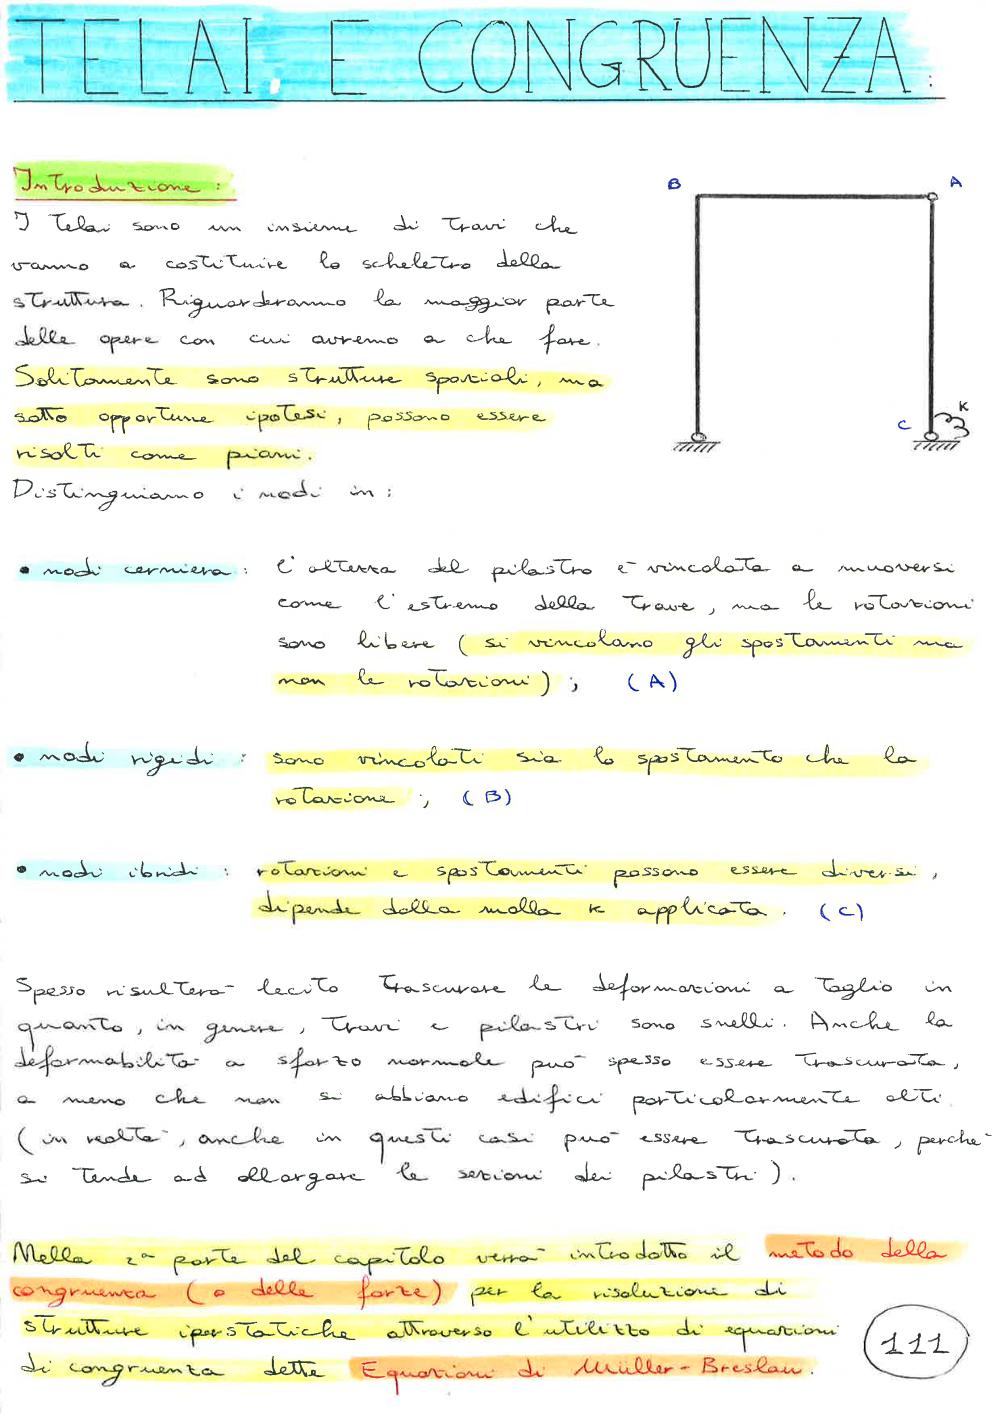 TELAI E CONGRUENZA:
Introduzione:
B
A
I telai sono un insieme di travi che
vanno a costituire lo scheletro della
struttura. Riguarderanno la maggior parte
delle opere con cui avremo a che fare.
Solitamente sono strutture spaziali, ma
sotto opportune ipotesi, possono essere
risolti come piani.
C
K
Distinguiamo i nodi in:
• nodi cerniera: l'altezza del pilastro è vincolata a muoversi
come l'estremo della trave, ma le rotazioni
sono libere (si vincolano gli spostamenti ma
non le rotazioni); (A)
• nodi rigidi: sono vincolati sia lo spostamento che la
rotazione; (B)
• nodi ibridi: rotazioni e spostamenti possono essere diversi,
dipende dalla molla K applicata. (C)
Spesso risulterà lecito trascurare le deformazioni a taglio in
quanto, in genere, travi e pilastri sono snelli. Anche la
deformabilità a sforzo normale può spesso essere trascurata,
a meno che non si abbiano edifici particolarmente alti
(in realtà, anche in questi casi può essere trascurata, perché
si tende ad allargare le sezioni dei pilastri).
Nella 2ª parte del capitolo verrà introdotto il metodo della
congruenza (o delle forze) per la risoluzione di
strutture iperstatiche attraverso l'utilizzo di equazioni
di congruenza dette Equazioni di Müller-Breslau.
111